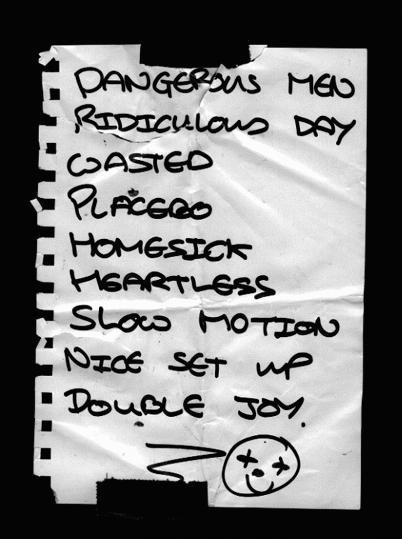 DANGEROUS MEN
RIDICULOUS DAY
WASTED
PLACEBO
HOMESICK
HEARTLESS
SLOW MOTION
NICE SET UP
DOUBLE JOY.